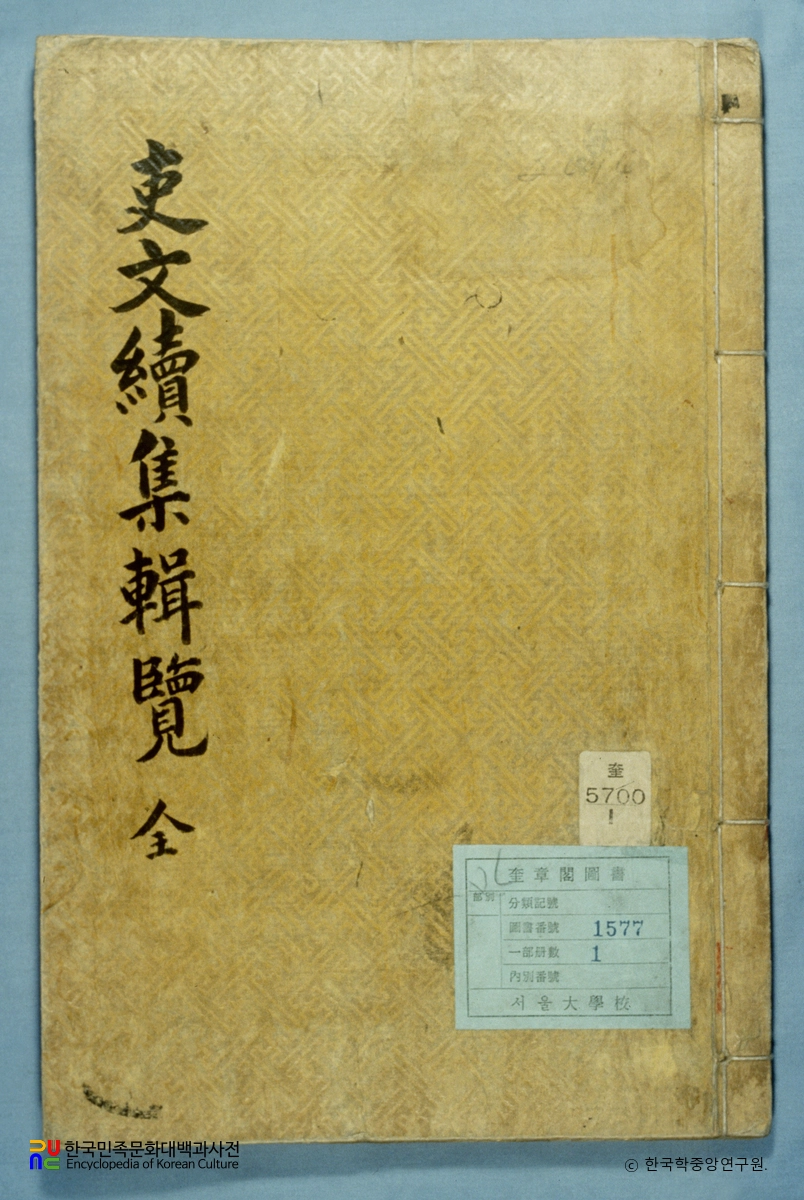 吏文續集輯覽 全
奎
5700
1
奎章閣圖書
部別
分類記號
圖書番號 1577
一部冊數 1
內別番號
서울大學校
한국민족문화대백과사전
Encyclopedia of Korean Culture
ⓒ 한국학중앙연구원.